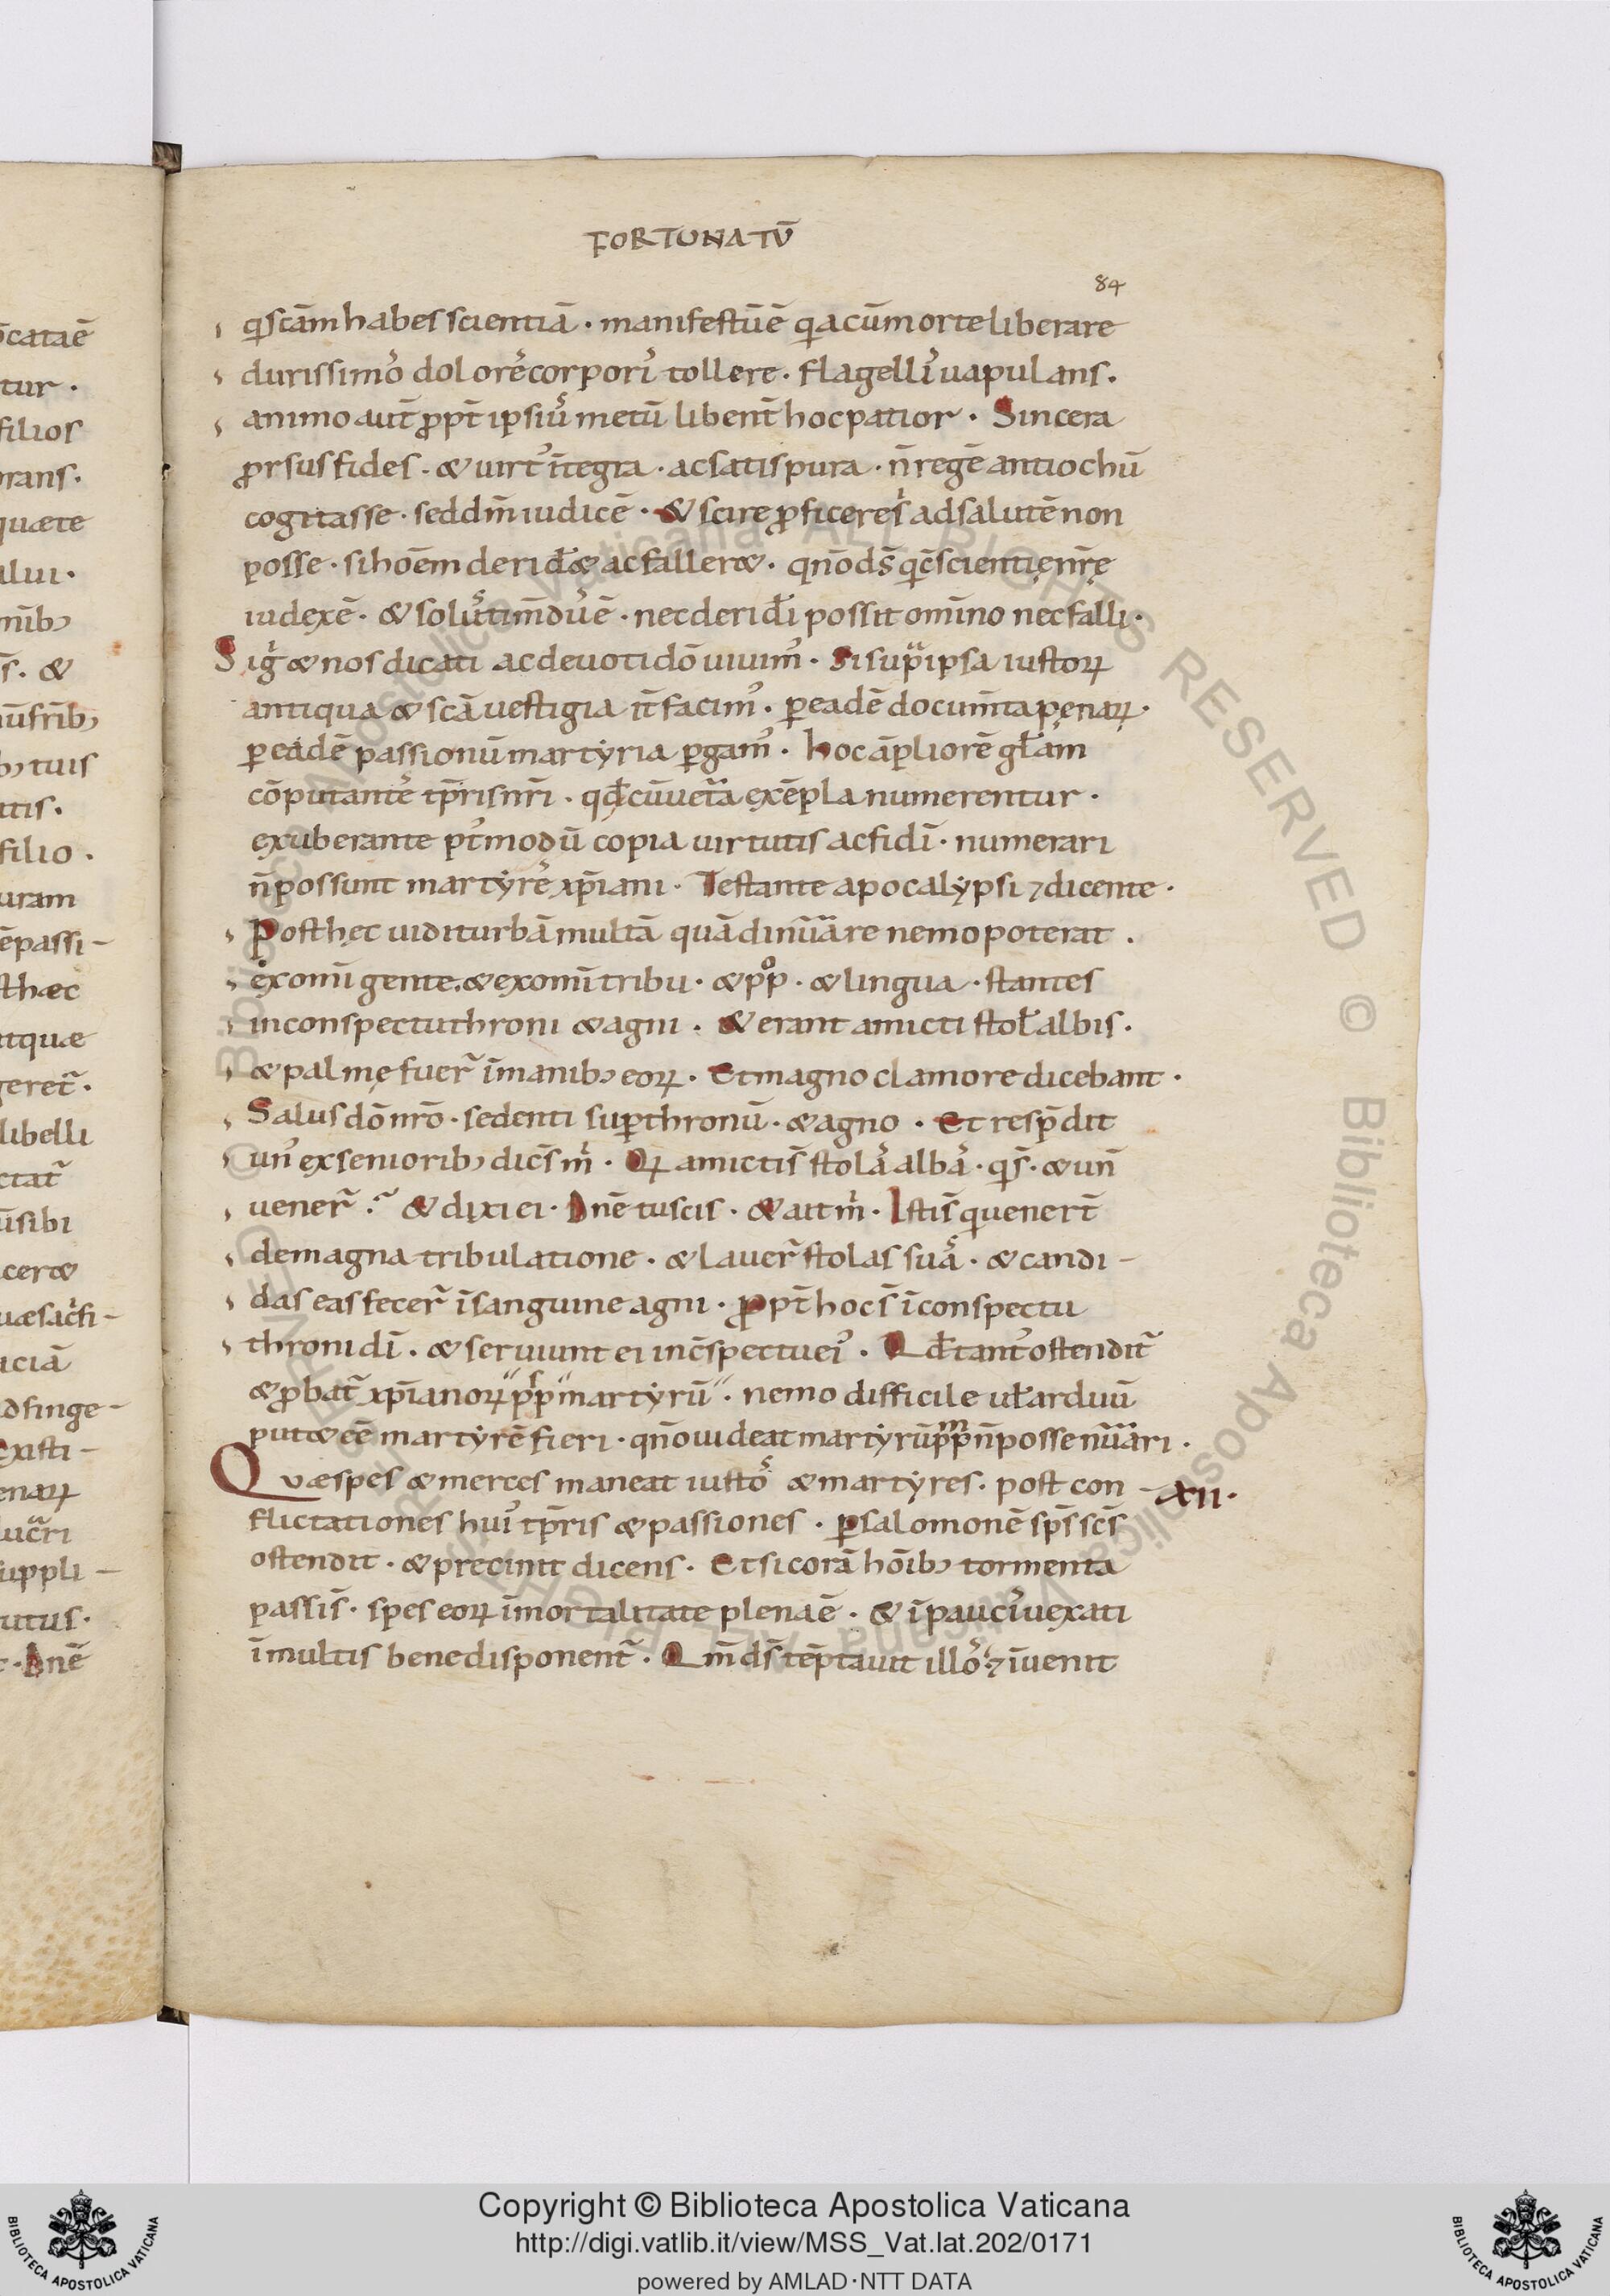 FORTUNATŪ
84
qi scām habes scientiā · manifestū ē qia cū morte liberare
durissimos dolores corporis tollere · flagellis uapulans ·
animo aut̄ ꝓpt̄ ipsius metū libent̄ hoc patior · Sincera
ꝓrsus fides · & uirtus īntegra · ac satis pura · n̄ regē antiochū
cogitasse · sed dm̄ iudicē · & scire ꝓficere si ad salutē non
posse · si hoēm derid& ac faller& · qn̄o ds̄ qi c̄scientię nr̄ę
iudex ē · & solus timdus ē · nec derideri possit omīno nec falli ·
Sigͥ & nos dicati ac deuoti dō uiuimꝰ · Si suꝑ ipsa iustoꝝ
antiqua & scā uestigia it̄ facimꝰ · ꝑ eadē documta pęnaꝝ ·
ꝑ eadē passionū martyria ꝑgamꝰ · hoc āpliorē gl̄am
cōputantes tp̄ris nr̄i · qđ cū uetͣa exēpla numerentur ·
exuberante ptꝰmodū copia uirtutis ac fidī · numerari
n̄ possunt martyres xp̄iani · Testante apocalypsi ⁊ dicente ·
Post hęc uidi turbā multā quā dinūare nemo poterat ·
ex omī gente · & ex omī tribu · & ppo · & lingua · stantes
in conspectu throni & agni · & erant amicti stol̄ albis ·
& palmę fuer̄ ī manibꝫ eoꝝ · Et magno clamore dicebant ·
Salus dō nrō · sedenti suꝑ thronū · & agno · Et respōdit
unꝰ ex senioribꝫ dic̄s m̄ · Qi amicti s̄ stolas albas · qi s̄ · & un̄
uener̄ ? & dixi ei · Dne tu scis · & ait m̄ · Isti s̄ qi uenert̄
de magna tribulatione · & lauer̄ stolas suas · & candi-
das eas fecer̄ ī sanguine agni · ꝓpt̄ hoc s̄ ī conspectu
throni dī · & seruiunt ei in c̄spectu eiꝰ · Qđ tantꝰ ostendit̄
& ꝓbat̄ xp̄ianoꝝ pps martyrū · nemo difficile ul̄ arduū
put& eē martyrē fieri · qn̄o uideat martyrū ppm n̄ posse nūari ·
Quæ spes & merces maneat iustos & martyres · post con-
flictationes huiꝰ tp̄ris & passiones · ꝑ salomonē sp̄s sc̄s
ostendit · & precinit dicens · Et si corā hōibꝫ tormenta
passi s̄ · spes eoꝝ īmortalitate plena ē · & ī paucis uexati
ī multis bene disponent̄ · Qm̄ ds̄ tēptauit illos ⁊ īuenit
XII ·
Copyright © Biblioteca Apostolica Vaticana
http://digi.vatlib.it/view/MSS_Vat.lat.202/0171
powered by AMLAD·NTT DATA
BIBLIOTECA APOSTOLICA VATICANA
BIBLIOTECA APOSTOLICA VATICANA